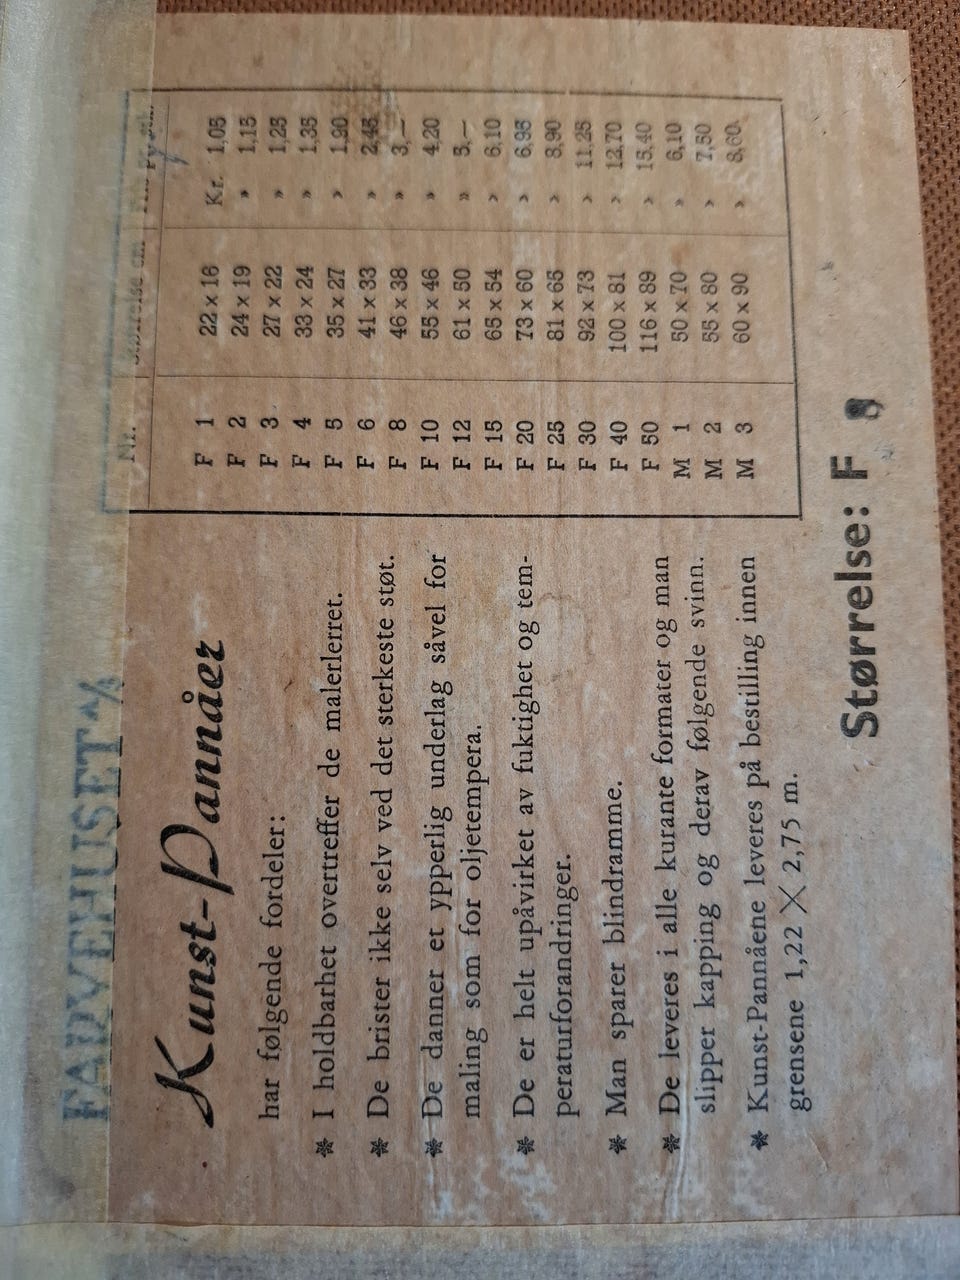 FARVEHUSET A/S
Kunst-Pannåer
har følgende fordeler:
* I holdbarhet overtreffer de malerlerret.
* De brister ikke selv ved det sterkeste støt.
* De danner et ypperlig underlag såvel for
maling som for oljetempera.
* De er helt upåvirket av fuktighet og tem-
peraturforandringer.
* Man sparer blindramme.
* De leveres i alle kurante formater og man
slipper kapping og derav følgende svinn.
* Kunst-Pannåene leveres på bestilling innen
grensene 1,22 × 2,75 m.
Nr. Størrelse cm
F 1 22 x 16 Kr. 1,05
F 2 24 x 19 » 1,15
F 3 27 x 22 » 1,25
F 4 33 x 24 » 1,35
F 5 35 x 27 » 1,90
F 6 41 x 33 » 2,45
F 8 46 x 38 » 3,—
F 10 55 x 46 » 4,20
F 12 61 x 50 » 5,—
F 15 65 x 54 » 6,10
F 20 73 x 60 » 6,95
F 25 81 x 65 » 8,90
F 30 92 x 73 » 11,25
F 40 100 x 81 » 12,70
F 50 116 x 89 » 15,40
M 1 50 x 70 » 6,10
M 2 55 x 80 » 7,50
M 3 60 x 90 » 8,60
Størrelse: F 8